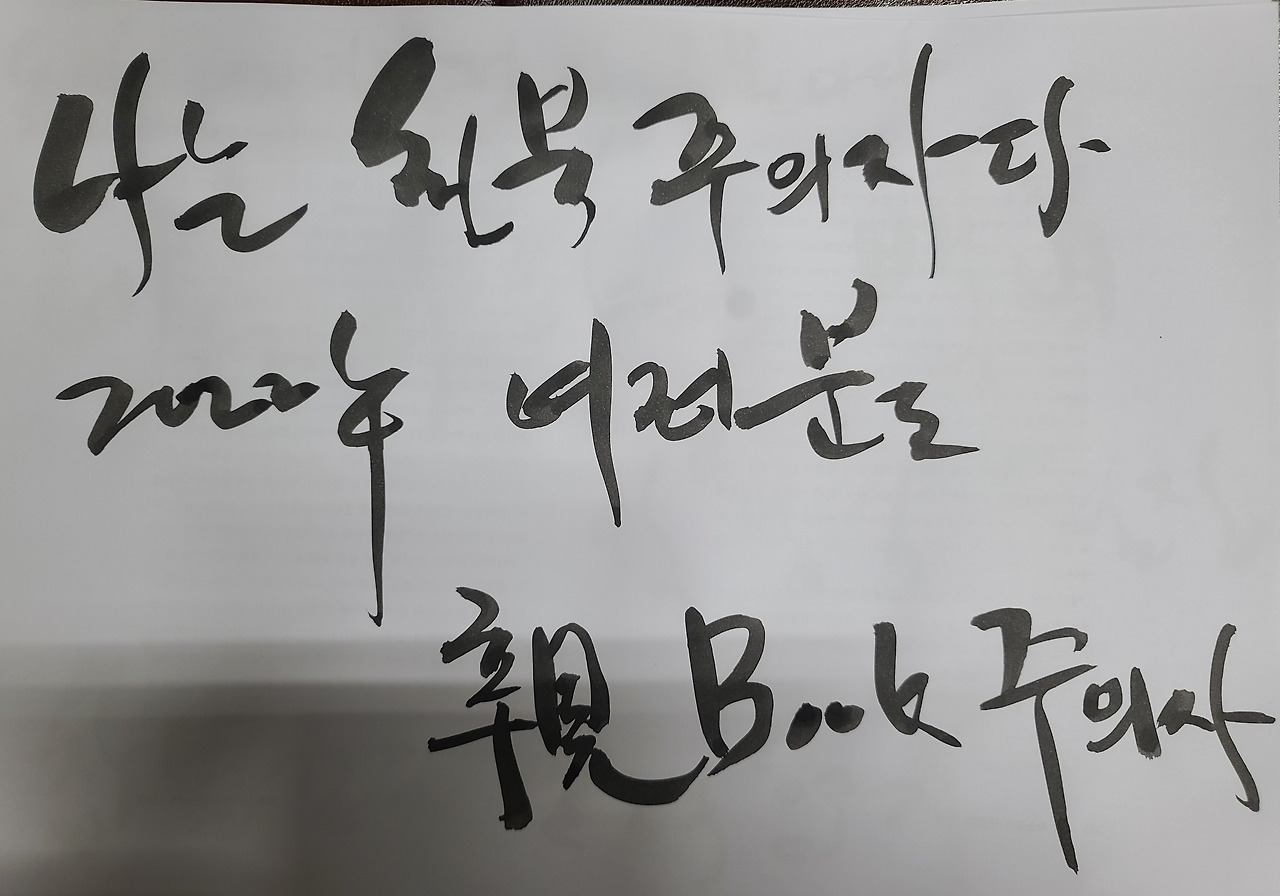 나는 친북 주의자다.
2022年 여러분도
親 Book 주의자